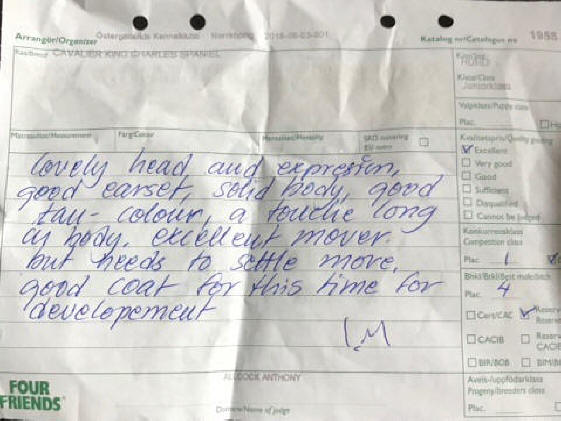 Arrangör/Organizer Östergötlands Kennelklubb Norrköping
Katalog nr/Catalogue nr 1958
Ras/Breed CAVALIER KING CHARLES SPANIEL
Kön/Sex
HUND
Klass/Class
Juniorklass
Valpklass/Puppy class
Plac.
Mätresultat/Measurement Färg/Colour Mentalitet/Mentality
Kvalitetspris/Quality grading
Excellent
Very good
Good
Sufficient
Disqualified
Cannot be judged
lovely head and expression,
good earset, solid body, good
tan-colour, a touche long
in body, excellent mover.
but needs to settle more,
good coat for this time for
developement
Konkurrensklass
Competition class
Plac. 1
Plac. 4
Cert/CAC Reserv
CACIB Reserv
BIR/BOB BIM/B
ALCOCK ANTHONY
Domare/Name of judge
Avels-/uppfödarklass
Progeny/breeders class
Plac.
FOUR
FRIENDS